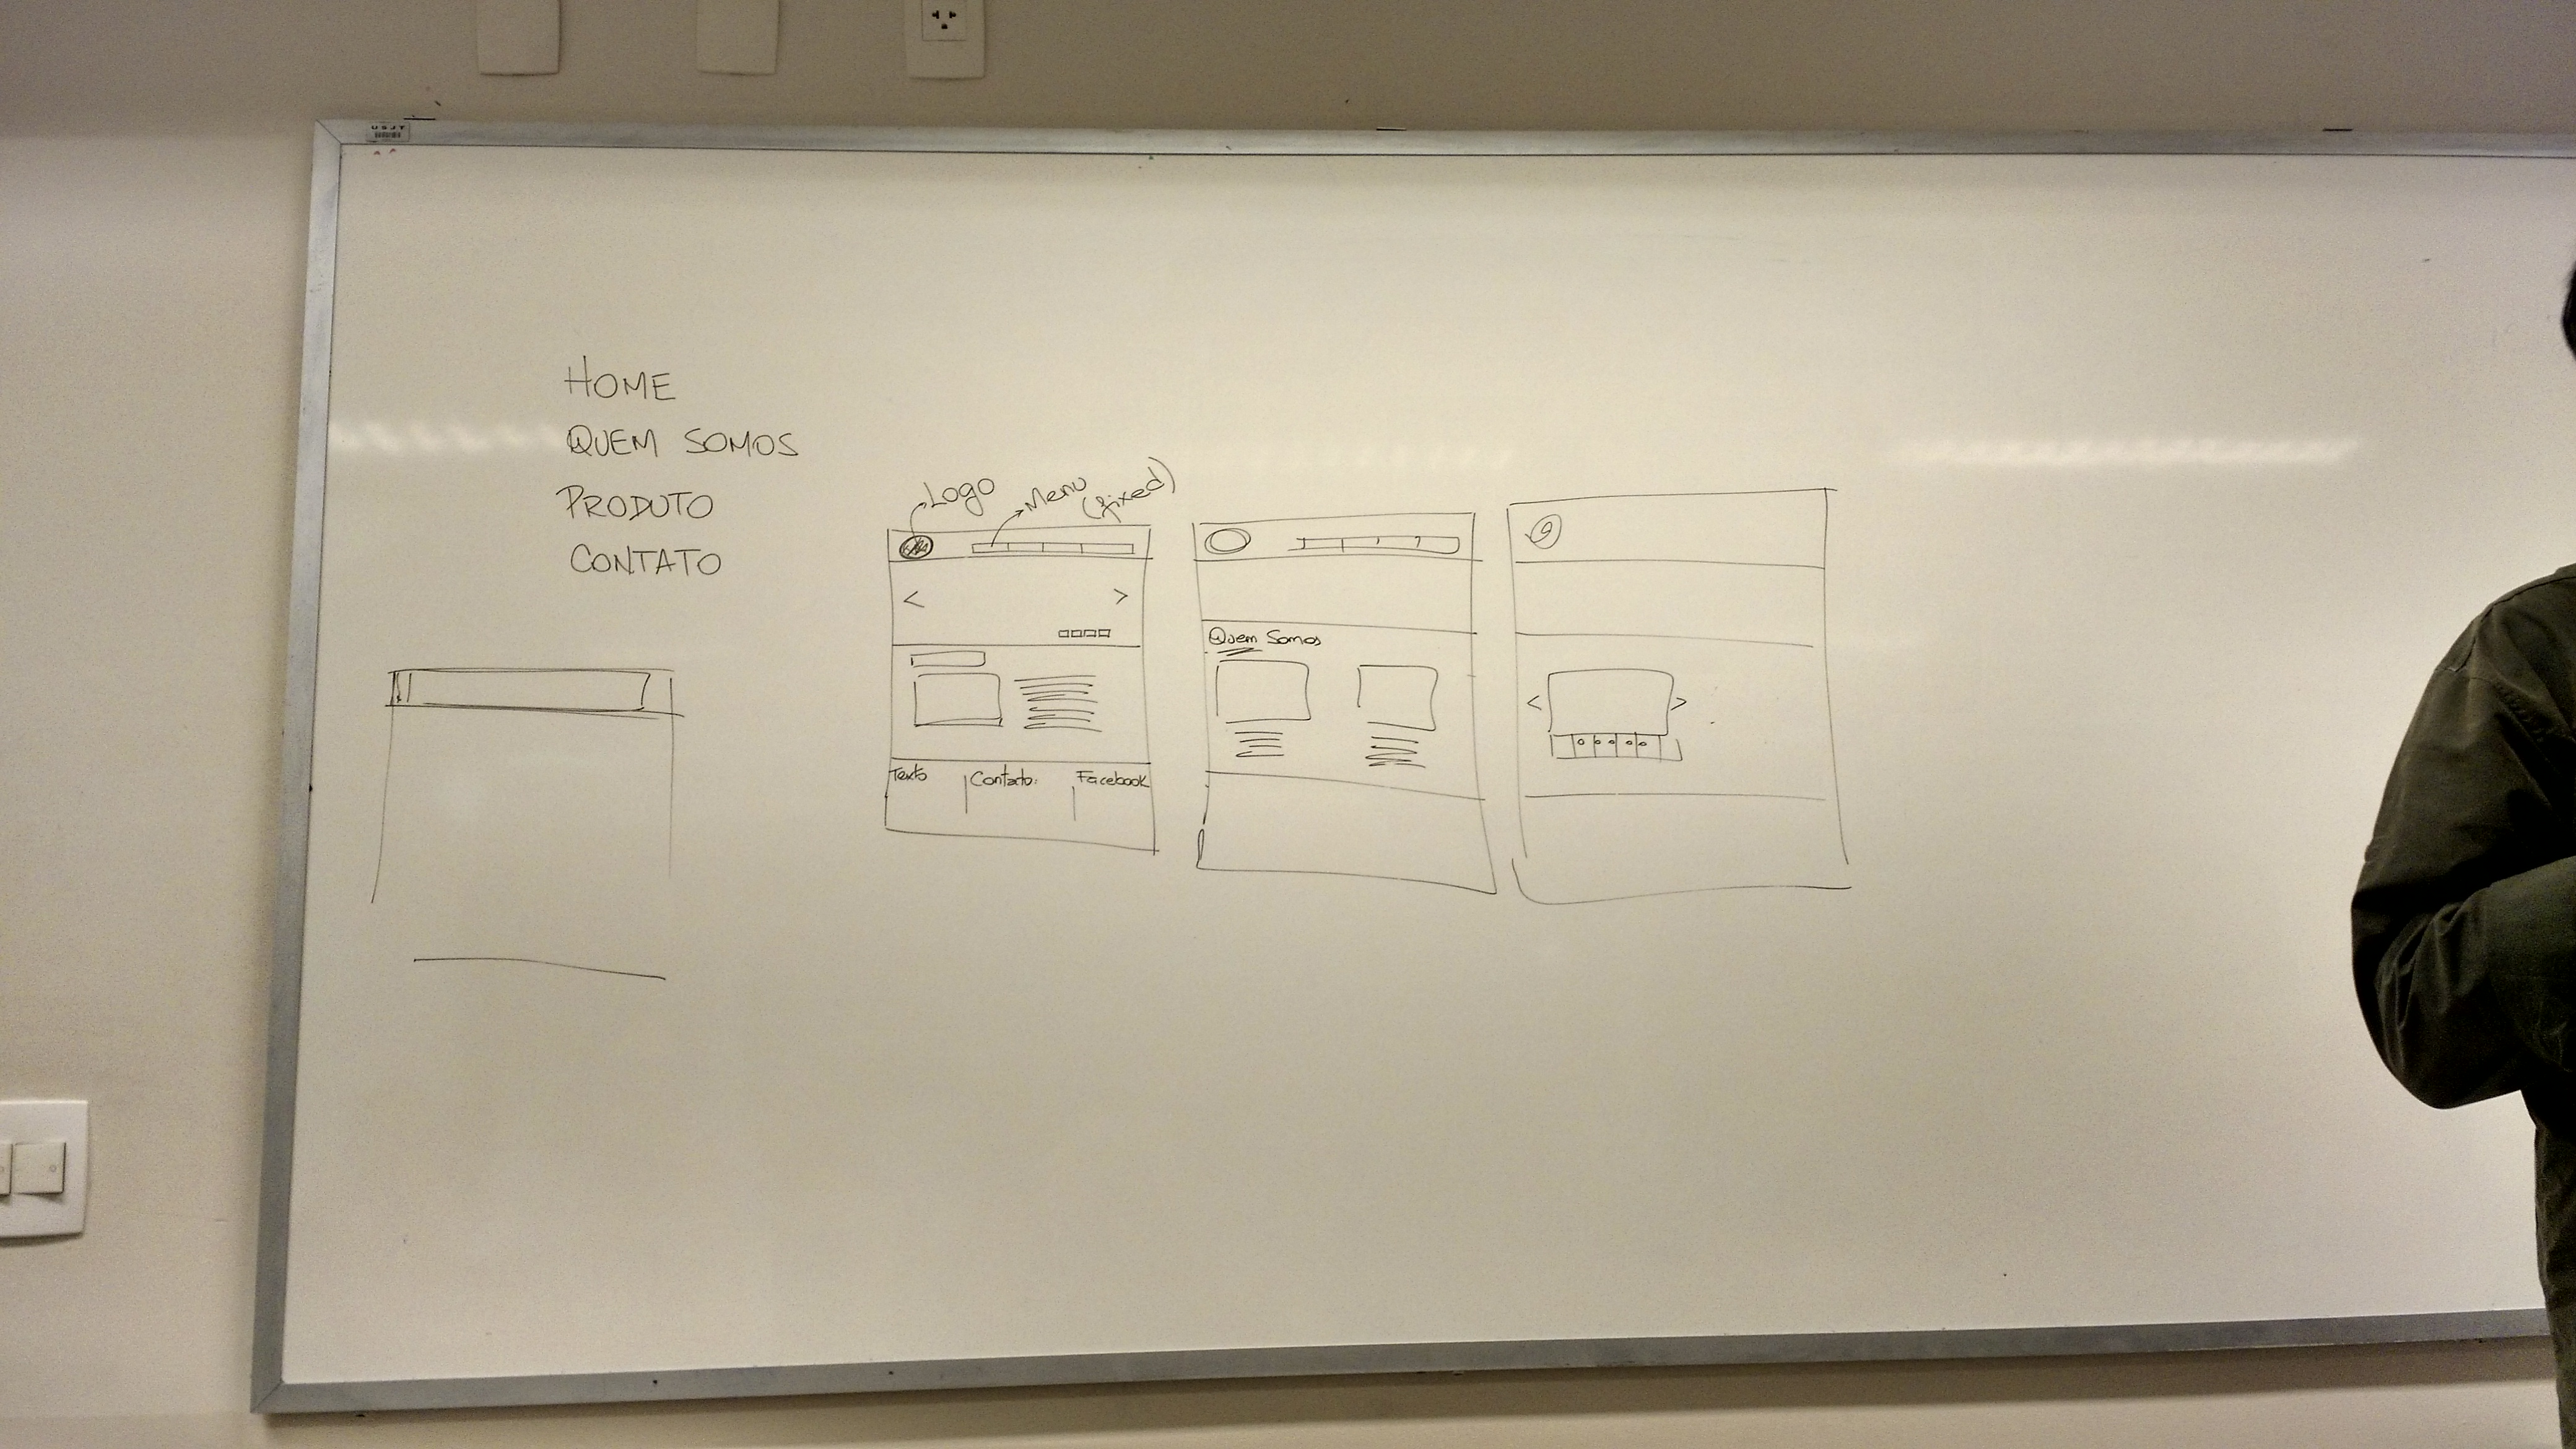 USJT
HOME
QUEM SOMOS
PRODUTO
CONTATO
Logo
Menu
(fixed)
Texto
Contato:
Facebook
Quem Somos